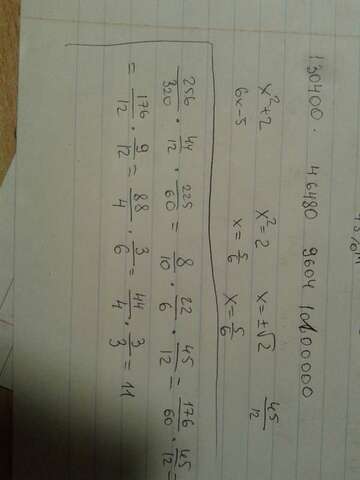 130400 · 46480 9604
x²+2 x²=2 x=±√2 45/12
6x-5 x=5/6 x=5/6
256/320 · 44/12 · 225/60 = 8/10 · 22/6 · 45/12 = 176/60 · 45/12 =
= 176/12 · 9/12 = 88/4 · 3/6 = 44/4 · 3/3 = 11